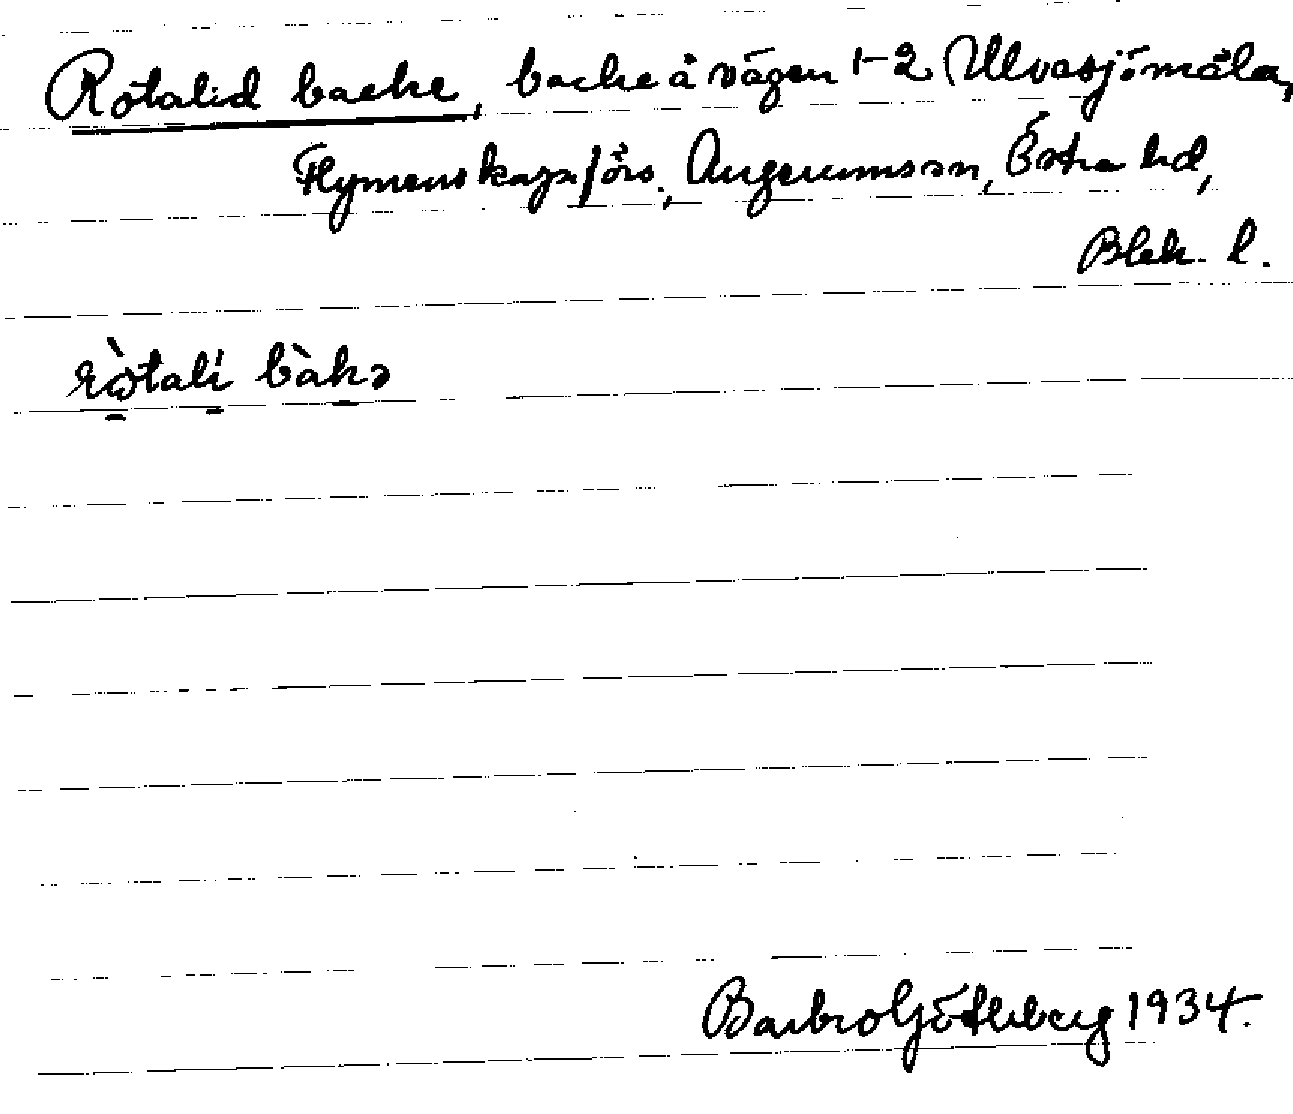 Rötalid backe, backe å vägen 1-2 Ulvasjömåla,
Flymens kapellförs., Augerumssn, Östra hd,
Blek. l.
bàkə
Barbro Götheberg 1934.